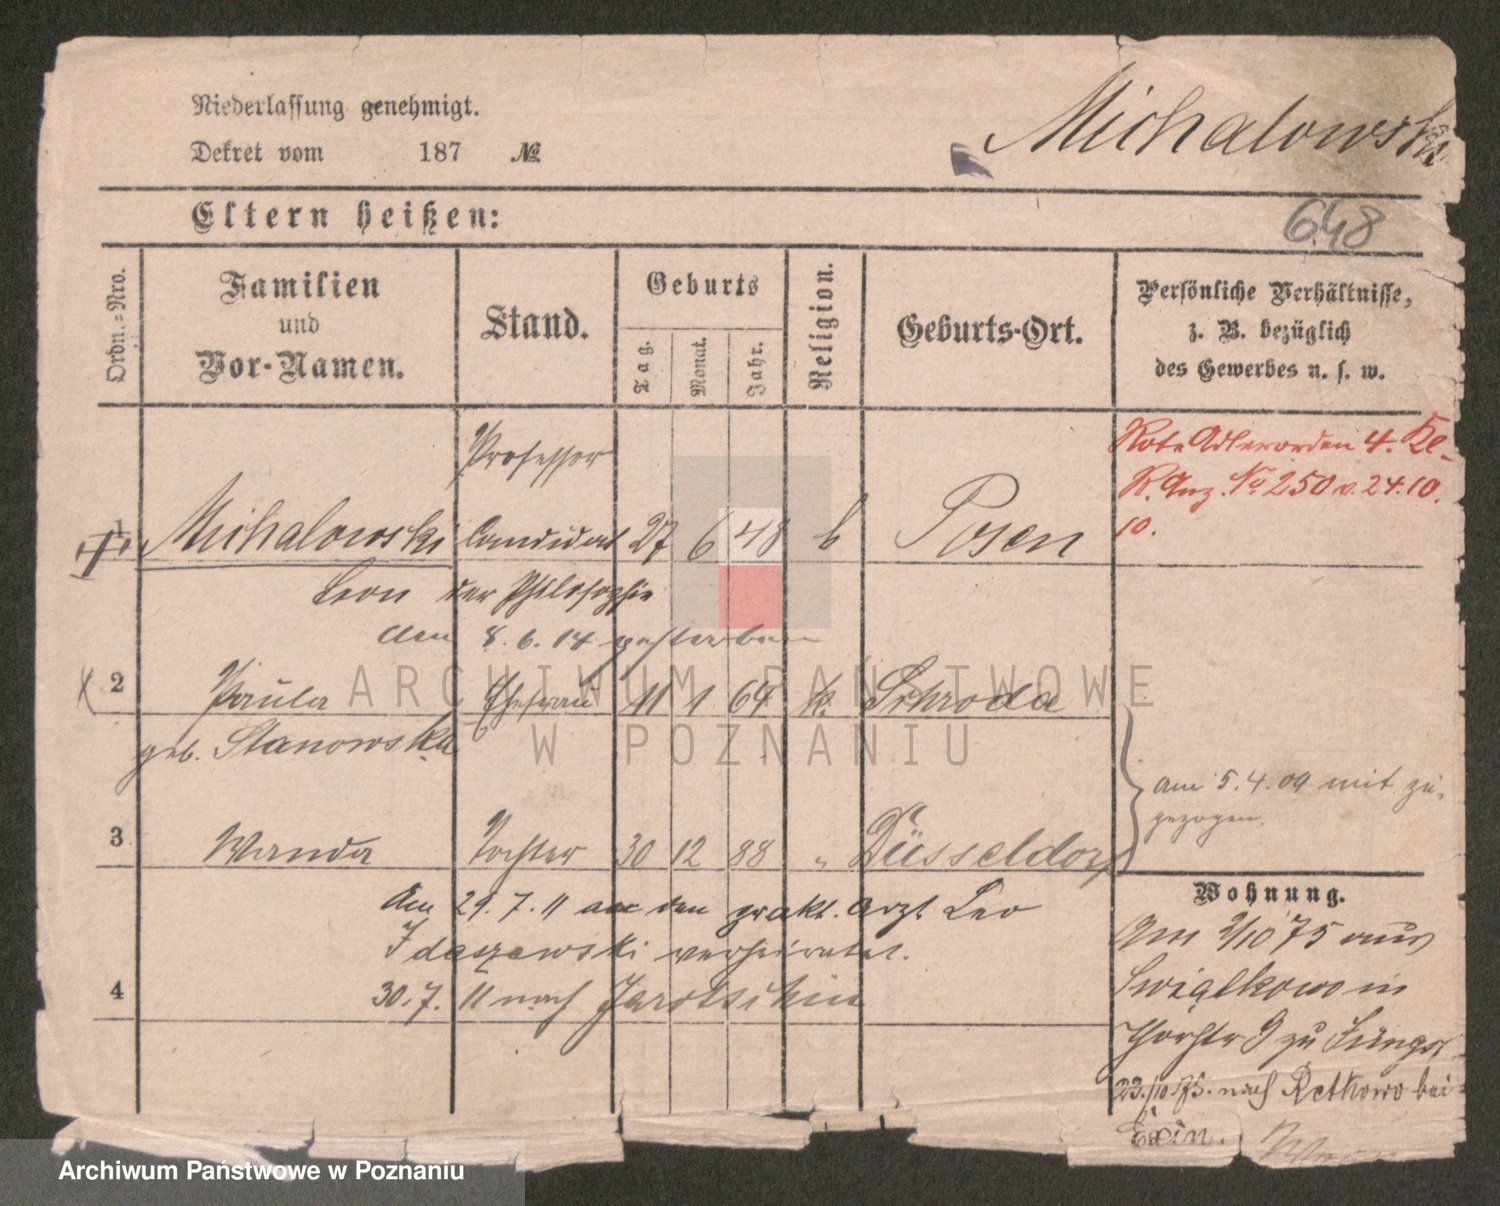 Niederlassung genehmigt.
Dekret vom 187 №
Michalowski
648
Eltern heißen:
Ordn.-Nro.
Familien
und
Vor-Namen.
Stand.
Geburts
Tag.
Monat.
Jahr.
Religion.
Geburts-Ort.
Persönliche Verhältnisse,
z. B. bezüglich
des Gewerbes u. s. w.
Rote Adlerorden 4. Kl.
R. Anz. No 250 v. 24.10.
10.
Professor
1 Michalowski Candidat 27 6 48 k Posen
Leon der Philosophie
den 8. 6. 14 gestorben
2 Paula Ehefrau 11 1 64 k. Schroda
geb. Stanowska
am 5.4.09 mit zu-
gezogen.
3 Wanda Tochter 30 12 88 " Düsseldorf
Am 29.7.11 an den prakt. Arzt Leo
Idaszewski verheiratet.
4 30.7. 11 nach Jarotschin
Wohnung.
Am 2/10 75 aus
Swiątkowo in
9 zu
23./10.75. nach Retkowo bei
Exin.
ARCHIWUM PAŃSTWOWE
W POZNANIU
Archiwum Państwowe w Poznaniu